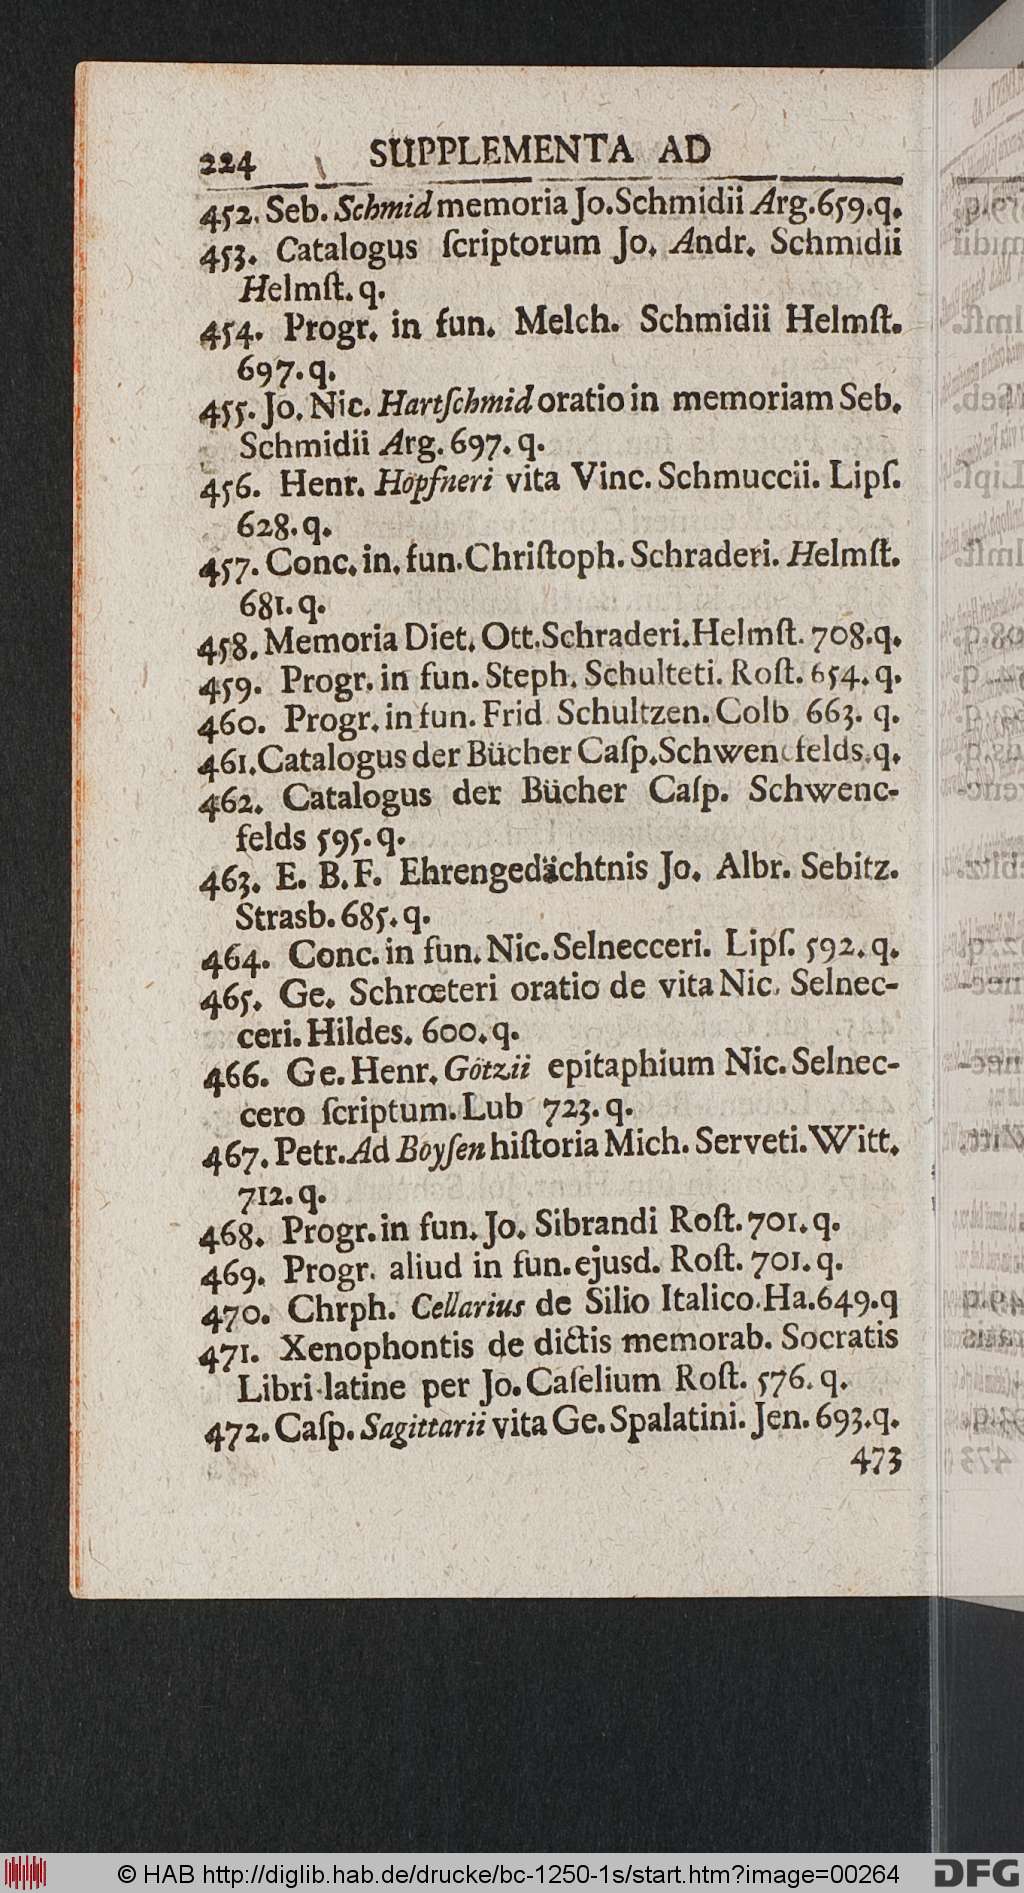 224 SUPPLEMENTA AD
452. Seb. Schmid memoria Jo. Schmidii Arg. 659. q.
453. Catalogus ſcriptorum Jo. Andr. Schmidii
Helmſt. q.
454. Progr. in fun. Melch. Schmidii Helmſt.
697. q.
455. Jo. Nic. Hartſchmid oratio in memoriam Seb.
Schmidii Arg. 697. q.
456. Henr. Höpfneri vita Vinc. Schmuccii. Lipſ.
628. q.
457. Conc. in. fun. Chriſtoph. Schraderi. Helmſt.
681. q.
458. Memoria Diet. Ott. Schraderi. Helmſt. 708. q.
459. Progr. in fun. Steph. Schulteti. Roſt. 654. q.
460. Progr. in fun. Frid. Schultzen. Colb 663. q.
461. Catalogus der Bücher Caſp. Schwencfelds. q.
462. Catalogus der Bücher Caſp. Schwenc-
felds 595. q.
463. E. B. F. Ehrengedächtnis Jo. Albr. Sebitz.
Strasb. 685. q.
464. Conc. in fun. Nic. Selnecceri. Lipſ. 592. q.
465. Ge. Schrœteri oratio de vita Nic. Selnec-
ceri. Hildes. 600. q.
466. Ge. Henr. Götzii epitaphium Nic. Selnec-
cero ſcriptum. Lub 723. q.
467. Petr. Ad Boyſen hiſtoria Mich. Serveti. Witt.
712. q.
468. Progr. in fun. Jo. Sibrandi Roſt. 701. q.
469. Progr. aliud in fun. ejusd. Roſt. 701. q.
470. Chrph. Cellarius de Silio Italico. Ha. 649. q
471. Xenophontis de dictis memorab. Socratis
Libri latine per Jo. Caſelium Roſt. 576. q.
472. Caſp. Sagittarii vita Ge. Spalatini. Jen. 693. q.
473
© HAB http://diglib.hab.de/drucke/bc-1250-1s/start.htm?image=00264
DFG